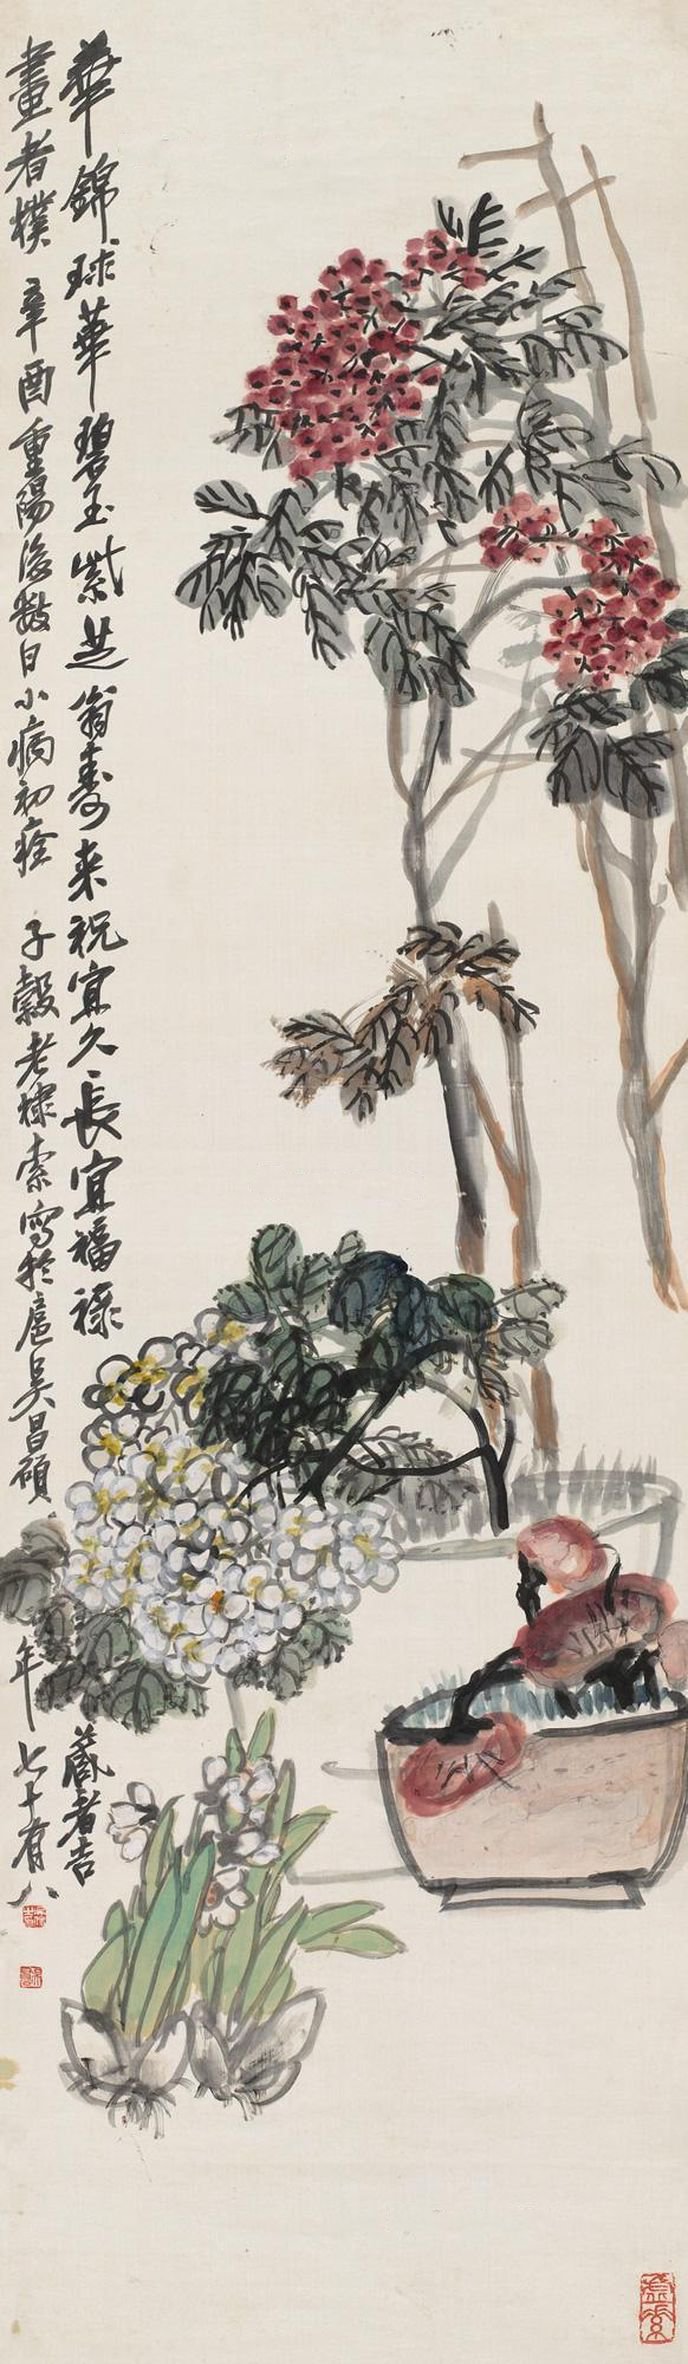 華錦球華碧玉紫芝翁壽來祝宜久長宜福祿藏者吉
畫者樸 辛酉重陽後數日小病初痊 子穀老棣索寫於扈吳昌碩年七十有八